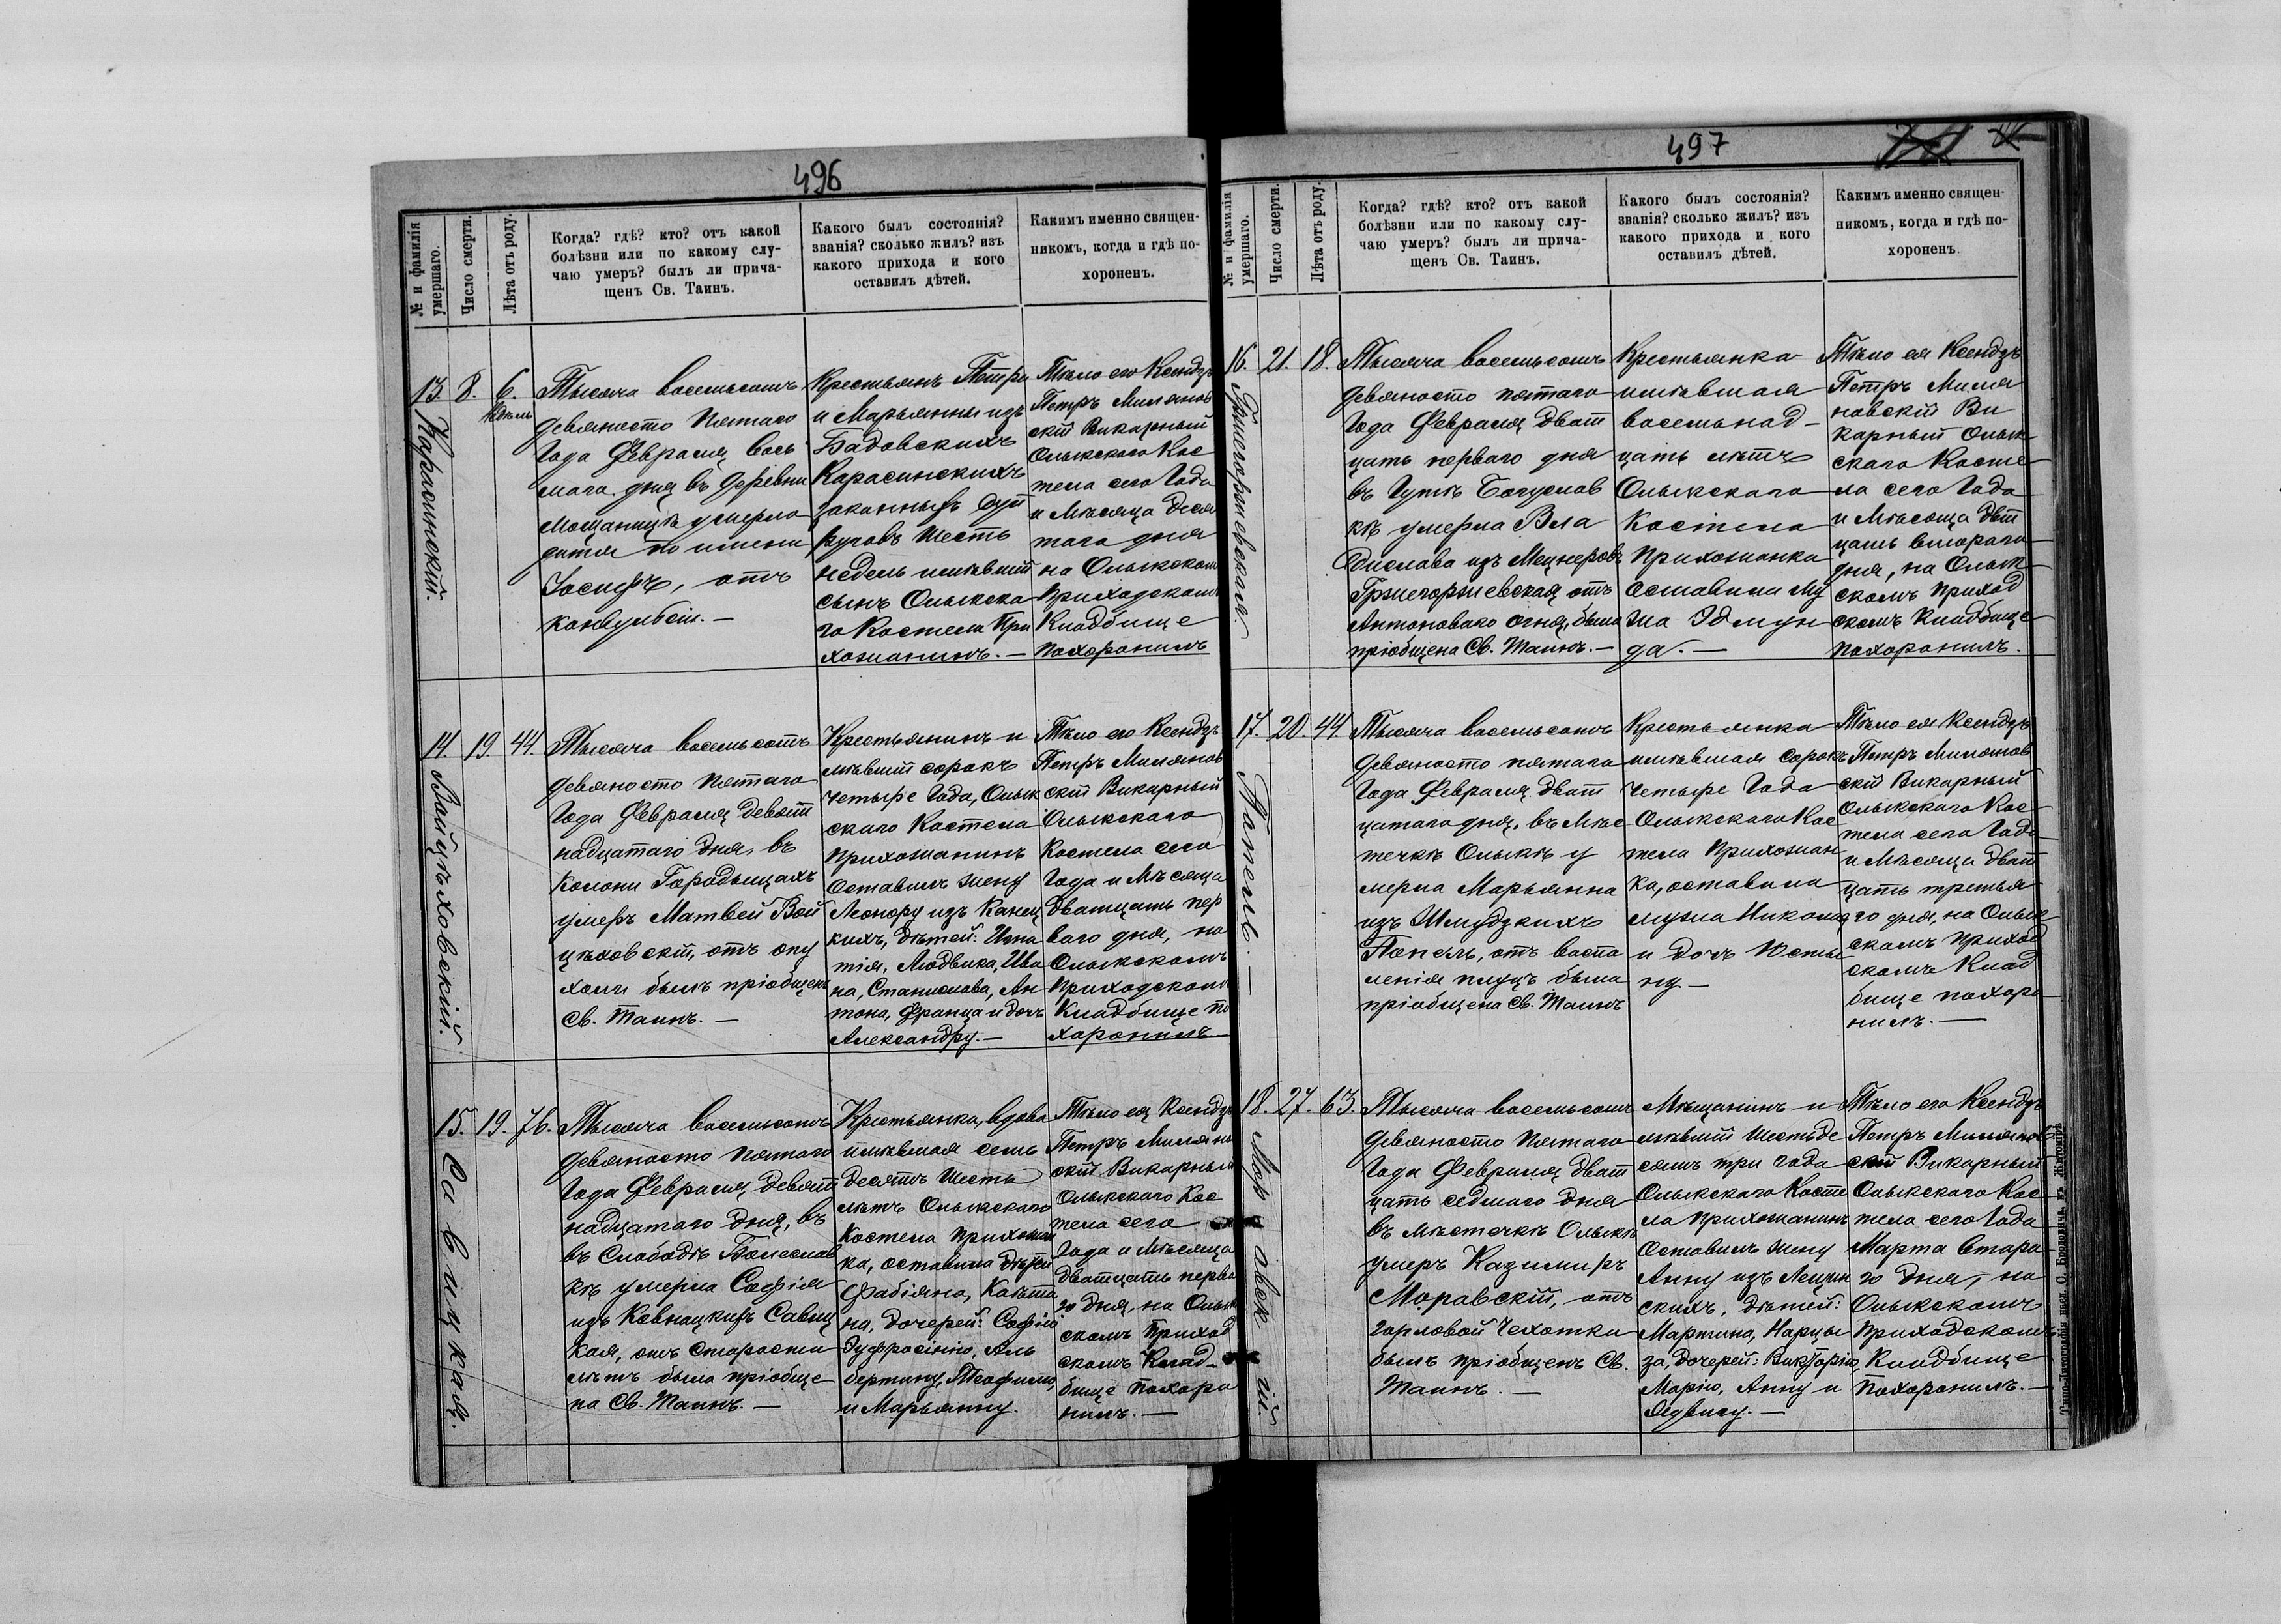 496
№ и фамилія умершаго.
Число смерти.
Лѣта отъ роду.
Когда? гдѣ? кто? отъ какой
болѣзни или по какому слу-
чаю умеръ? былъ ли прича-
щенъ Св. Таинъ.
Какого былъ состоянія?
званія? сколько жилъ? изъ
какого прихода и кого
оставилъ дѣтей.
Какимъ именно священ-
никомъ, когда и гдѣ по-
хороненъ.
13.
Карасинскій.
8.
6.
Недѣль
Тысяча восемьсотъ
девяносто пятаго
Года Февраля вось
мага дня въ Деревни
Мощаницѣ умерло
дитя по имени
Іосифъ, отъ
конвульсіи.—
Крестьянъ Петра
и Марьянны изъ
Бадовскихъ
Карасинскихъ
законныхъ суп
руговъ Шесть
недель имѣвшій
сынъ Олыкска
го Костела При
хожанинъ.—
Тѣло его Ксендзъ
Петръ Милянов
скій Викарный
Олыкскаго Кос
тела сего Года
и Мѣсяца Деся
таго дня
на Олыкскомъ
Приходскомъ
Кладбище
похоронилъ
14.
Войцѣховскій.
19.
44.
Тысяча восемьсотъ
девяносто пятаго
Года Февраля девят
надцатаго дня, въ
Колони Городыщахъ
умеръ Матвей Вой
цѣховскій, отъ опу
холи былъ пріобщенъ
Св. Таинъ.—
Крестьянинъ и
мѣвшій сорокъ
четыре Года, Олык
скаго Костела
прихожанинъ
Оставилъ жену
Леонору изъ Канец
кихъ, дѣтей: Игна
тія, Людвика, Ива
на, Станислава, Ан
тона, Франца и дочь
Александру.—
Тѣло его Ксендзъ
Петръ Милянов
скій Викарный
Олыкскаго
Костела сего
Года и Мѣсяца
Дватцать пер
ваго дня, на
Олыкскомъ
Приходскомъ
Кладбище по
хоронилъ.—
15.
Савицкая.
19.
76.
Тысяча восемьсотъ
девяносто пятаго
Года Февраля девят
надцатаго дня, въ
въ Слободѣ Болеслав
кѣ умерла Софія
изъ Ковнацкихъ Савиц
кая, отъ старости
лѣтъ была пріобще
на Св. Таинъ.—
Крестьянка, вдова
имѣвшая семь
десятъ Шесть
лѣтъ Олыкскаго
Костела прихожан
ка, оставила дѣтей
Фабіяна, Каѣта
на, дочерей: Софію
Эуфросинію, Аль
бертину, Теофилю,
и Марьянну.
Тѣло ея Ксендзъ
Петръ Миляно
скій Викарный
Олыкскаго Кос
тела сего
Года и Мѣсяца
дватцать перва
го дня, на Олык
скомъ Приход
скомъ Клад-
бище похоро
нилъ.—
497
№ и фамилія умершаго.
Число смерти.
Лѣта отъ роду.
Когда? гдѣ? кто? отъ какой
болѣзни или по какому слу-
чаю умеръ? былъ ли прича-
щенъ Св. Таинъ.
Какого былъ состоянія?
званія? сколько жилъ? изъ
какого прихода и кого
оставилъ дѣтей.
Какимъ именно священ-
никомъ, когда и гдѣ по-
хороненъ.
16.
Гржегоржевская.
21.
18.
Тысяча восемьсотъ
девяносто пятаго
Года Февраля дват
цать перваго дня
въ Гутѣ Богуслав
кѣ умерла Вла
дислава изъ Мецнеровъ
Гржегоржевская, отъ
Антоноваго огня, была
пріобщена Св. Таинъ.—
Крестьянка
имѣвшая
восемьнад-
цать лѣтъ
Олыкскаго
Костела
Прихожанка
Оставила му
жа Эдмун
да.—
Тѣло ея Ксендзъ
Петръ Миля
новскій Ви
карный Олык
скаго Косте
ла сего Года
и Мѣсяца Дват
цать втораго
дня, на Олык
скомъ Приход
скомъ Кладбище
похоронилъ.
17.
Попель.—
20.
44.
Тысяча восемьсотъ
девяносто пятаго
Года Февраля дват
цатаго дня, въ Мѣс
течкѣ Олыкѣ у
мерла Марьянна
изъ Шмудзкихъ
Попель, отъ воспа
ленія плуцъ была
пріобщена Св. Таинъ
Крестьянка
имѣвшая сорокъ
четыре Года
Олыкскаго Кос
тела Прихожан
ка, оставила
мужа Николая
и дочь Юсты
ну.—
Тѣло ея Ксендзъ
Петръ Милянов
скій Викарный
Олыкскаго Кос
тела сего Года
и Мѣсяца дват
цать третья
го дня, на Олык
скомъ Приход
скомъ Клад
бище похоро
нилъ.—
18.
Моравскій.
27.
63.
Тысяча восемьсотъ
девяносто пятаго
Года Февраля дват
цать седмаго дня
въ мѣстечкѣ Олыкѣ
умеръ Казимиръ
Моравскій, отъ
горловой Чехотки
былъ пріобщенъ Св.
Таинъ.—
Мѣщанинъ и
мѣвшій Шестьде
сятъ три года
Олыкскаго Косте
ла прихожанинъ
Оставилъ жену
Анну изъ Лещин
скихъ, дѣтей:
Мартина, Нарцы
за, дочерей: Викторію,
Марію, Анну и
Ядвигу.—
Тѣло его Ксендзъ
Петръ Милянов
скій Викарный
Олыкскаго Кос
тела сего Года
Марта Втора
го дня, на
Олыкскомъ
Приходскомъ
Кладбище
Похоронилъ.—
Типо-Литографія насл. С. Бродовича, въ Житомірѣ